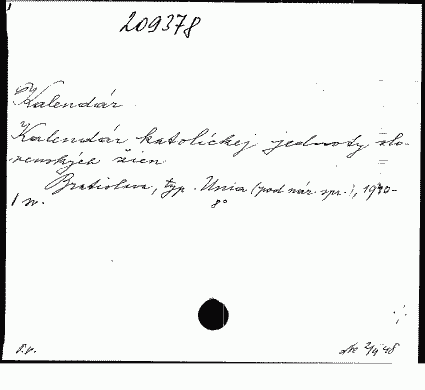 209378
Kalendár
Kalendár katolíckej jednoty slo-
venských žien
Bratislava, typ. Unia (pod nár. spr.), 1940-
1 v. 8°